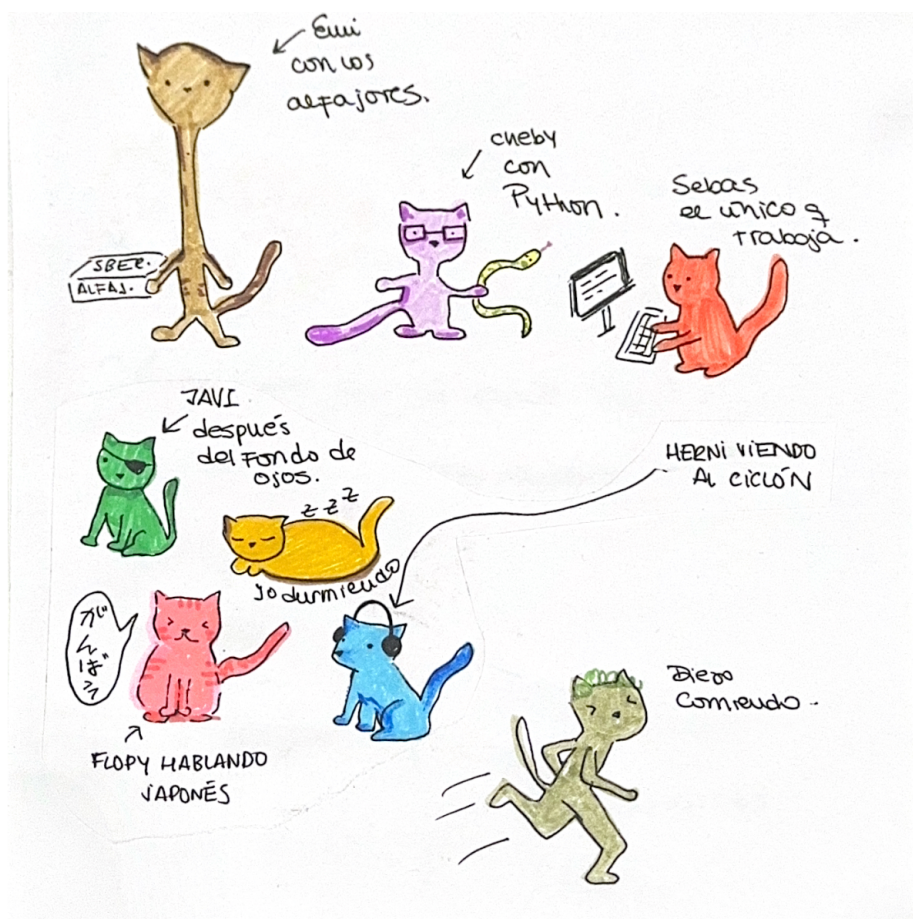 Emi
con los
alfajores.
cheby
con
Python.
Sebas
el único q
trabaja.
SBER.
ALFAJ.
JAVI
después
del Fondo de
ojos.
z z z
yo durmiendo
HERNI VIENDO
AL CICLÓN
FLOPY HABLANDO
JAPONÉS
Diego
corriendo.